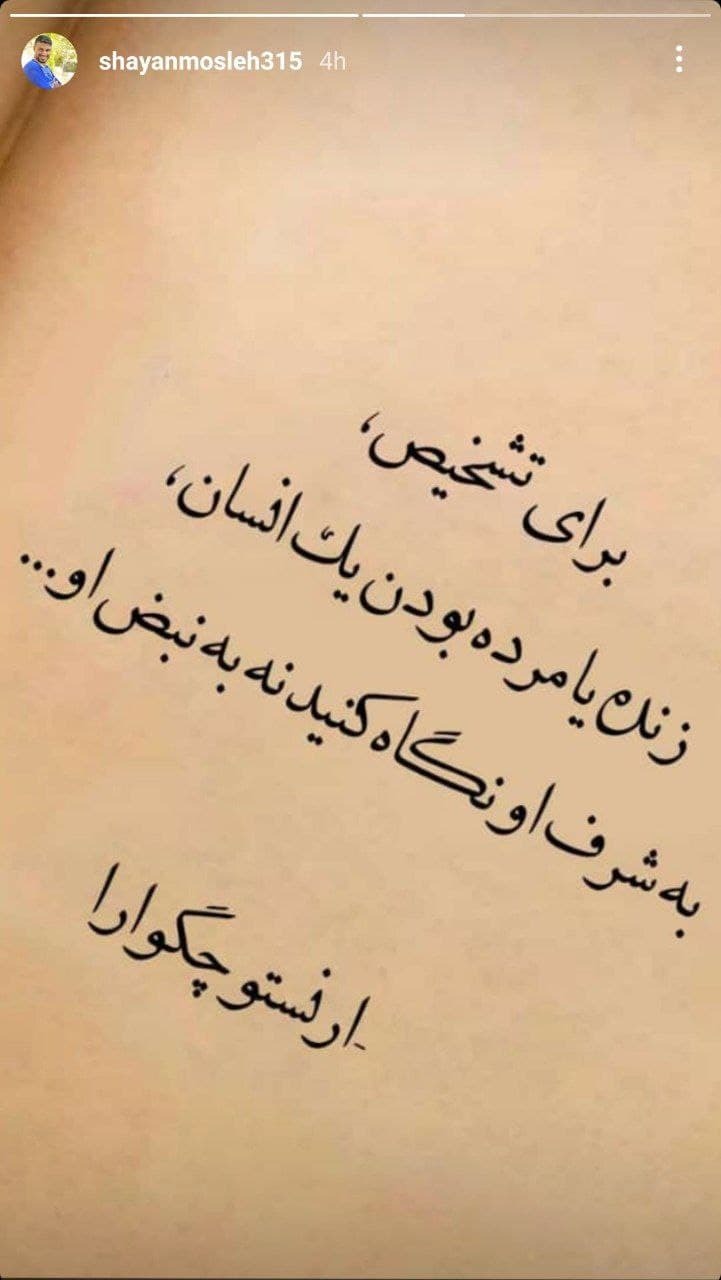 shayanmosleh315 4h
برای تشخیص،
زنده یا مرده بودن یك انسان،
به شرف او نگاه کنید نه به نبض او...
ارنستو چگوارا